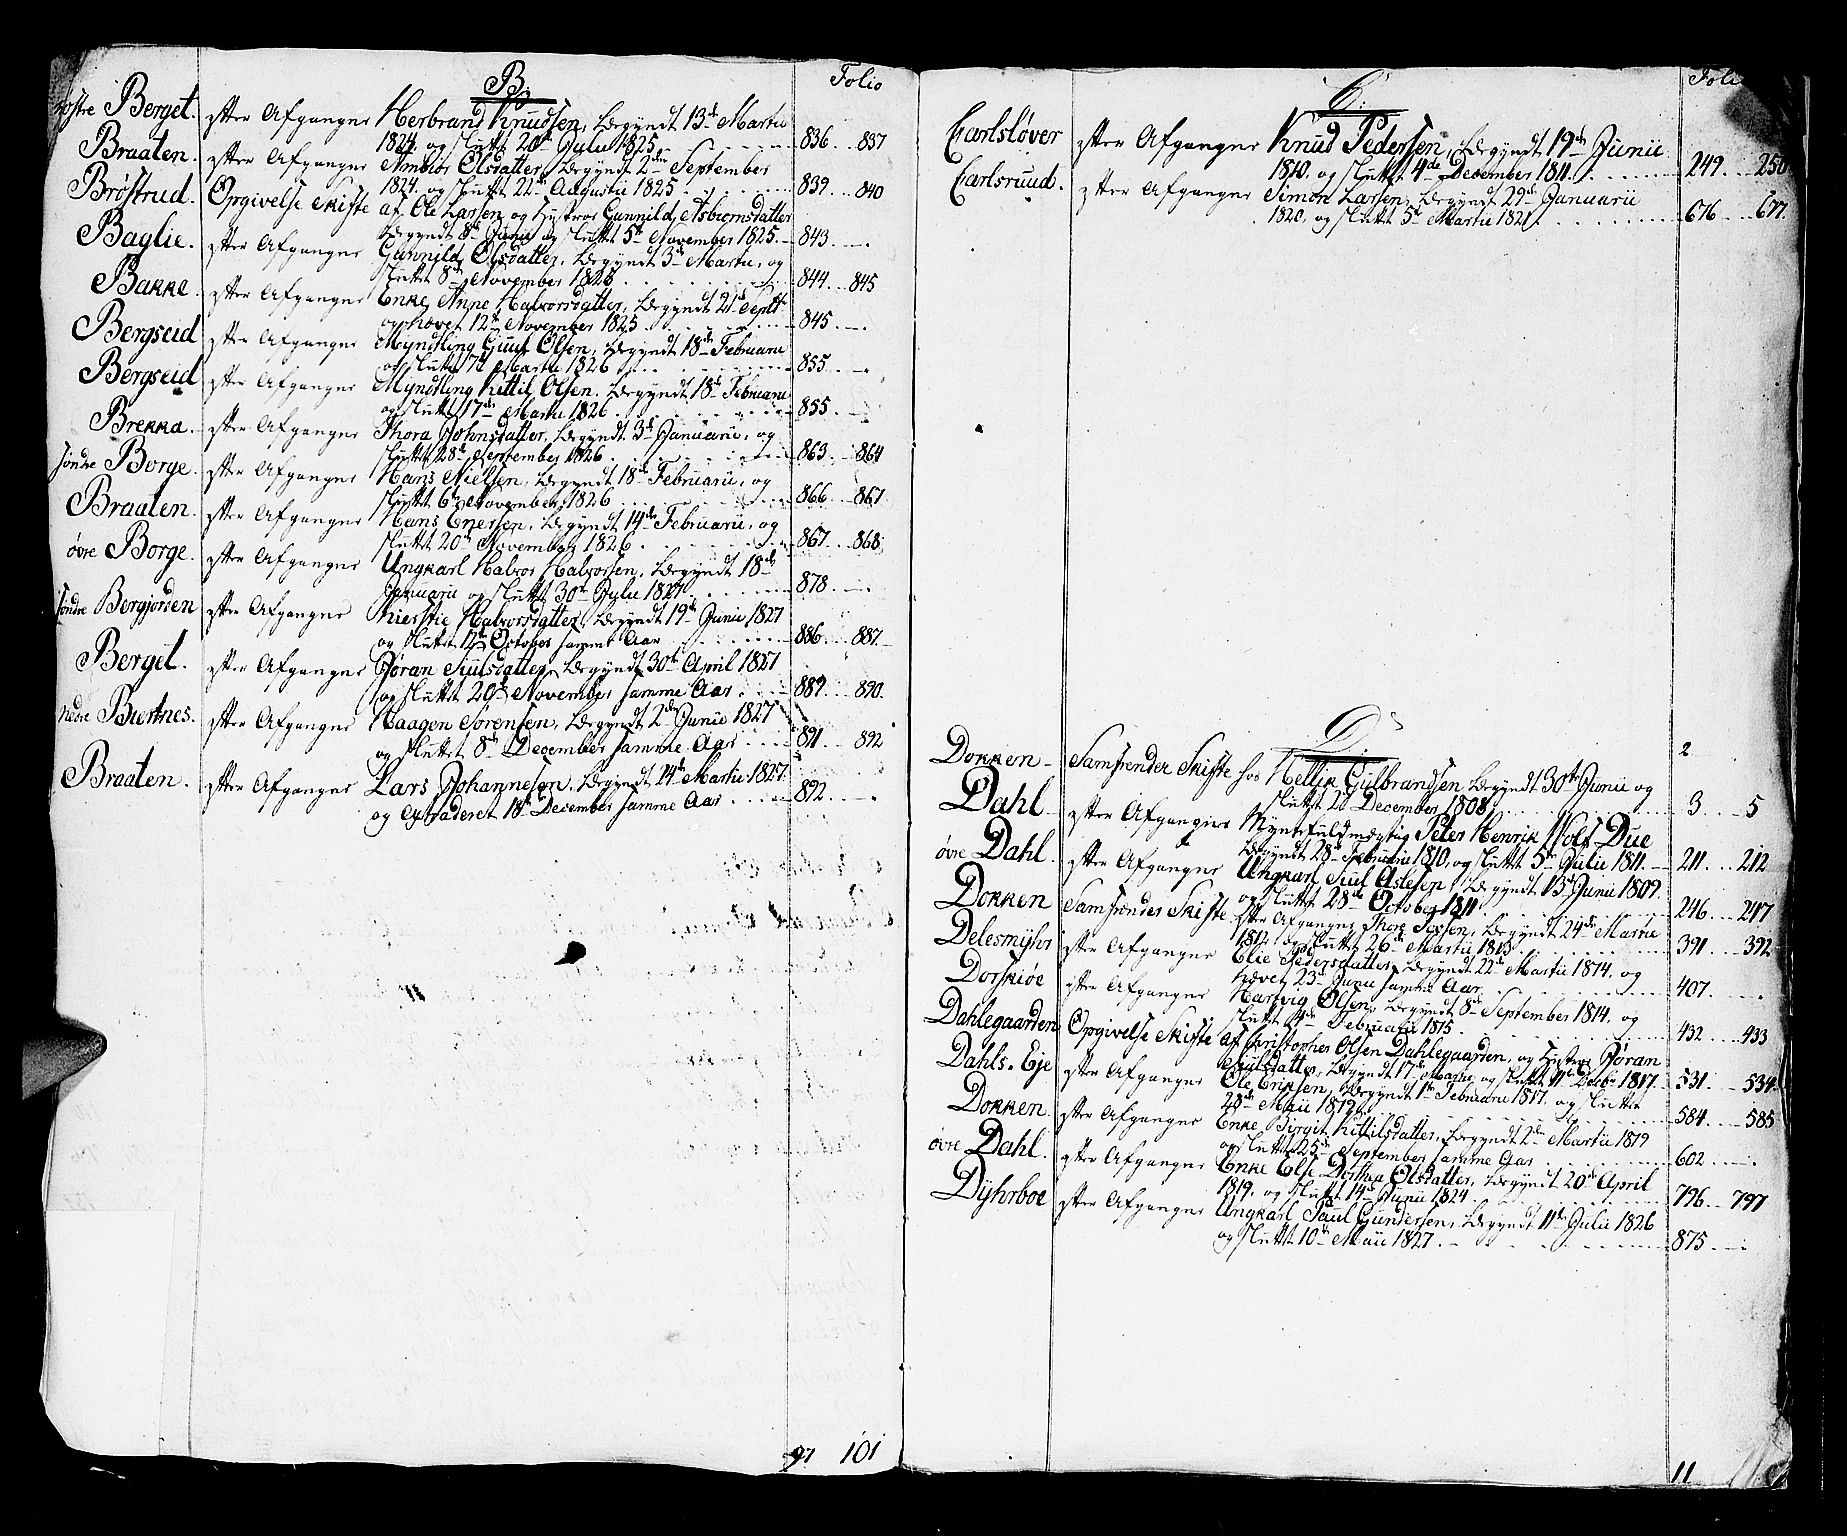 B.
Folio
Østre Berget. efter Afgangne Herbrand Knudsen, begyndt 13de Martii
1824. og sluttet 20de Julii 1825. 836 837
Braaten. efter Afgangne Ambiør Olsdatter, begyndt 2den September
1824. og sluttet 22de Augustii 1825. 839 840
Brøstrud. Opgivelse Skifte af Ole Larsen og Hustroe Gunnild Asbiørnsdatter
begyndt 8de Junii og sluttet 5te November 1825. 843
Baglie. efter Afgangne Gunnild Olsdatter, begyndt 3de Martii, og
sluttet 8de November 1825 844 845
Bakke. efter Afgangne Enke Anne Halvorsdatter, begyndt 21de Septbr
og hævet 12te November 1825 845
Bergseid efter Afgangne Myndtling Guul Olsen, begyndt 18de Februarii
og sluttet 17de Martii 1826 855
Bergseid efter Afgangne Myndtling Kittil Olsen. begyndt 18de Februarii
og sluttet 17de Martii 1826. 855
Brekka. efter Afgangne Thora Johnsdatter, begyndt 3de Januarii, og
sluttet 28de September 1826. 863 864
søndre Borge. efter Afgangne Hans Nielsen, begyndt 18de Februarii, og
sluttet 6te November 1826 866 867
Braaten. efter Afgangne Hans Enersen, begyndt 14de Februarii, og
sluttet 20de November 1826. 867 868
øvre Borge. efter Afgangne Ungkarl Halvor Halvorsen, begyndt 18de
Januarii og sluttet 30te Julii 1827. 878
søndre Bergjorden efter Afgangne Kierstie Halvorsdatter, begyndt 19de Junii 1827
og sluttet 12te October samme Aar 886 887
Berget. efter Afgangne Jøran Siulsdatter, begyndt 30te April 1827
og sluttet 20de November samme Aar 889 890
nedre Biertnes. efter Afgangne Haagen Sørensen, begyndt 2den Junii 1827
og sluttet 8de December samme Aar 891 892
Braaten. efter Afgangne Lars Johannesen, begyndt 14de Martii 1827.
og extraderet 18de December samme Aar 892
97 101
C.
Folio
Carlsløver efter Afgangne Knud Pedersen, begyndt 19de Junii
1810. og sluttet 4de December 1811. 249 250
Carlsruud. efter Afgangne Simon Larsen, begyndt 29de Januarii
1820. og sluttet 5te Martii 1821. 676 677
D.
Dokken Samfrender Skifte hos Hellik Gulbrandsen begyndt 30te Junii og 2
sluttet 2den December 1808. 3 5
Dahl efter Afgangne Myntefuldmægtig Peter Henrik Wolf Due
begyndt 28de Februarii 1810, og sluttet 5te Julii 1811. 211 212
øvre Dahl. efter Afgangne Ungkarl Siul Aslesen, begyndt 13de Junii 1809.
og sluttet 28de October 1811. 246 247
Dokken Samfrender Skifte efter Afgangne Thore Tossen, begyndt 24de Martii
1812. og sluttet 26de Martii 1813. 391 392
Delesmyhr efter Afgangne Elie Pedersdatter, begyndt 22de Martii 1814. og
hævet 23de Junii samme Aar 407
Dorskiøe efter Afgangne Hartvig Olsen, begyndt 8de September 1814. og
sluttet 4de Februarii 1815. 432 433
Dahlegaarden Opgivelse Skifte af Christopher Olsen Dahlegaarden, og Hustroe Jøran
Siulsdatter, begyndt 17de Martii og sluttet 11te Decbr 1817. 531 534
Dahls. Eje efter Afgangne Ole Eriksen, begyndt 1te Februarii 1817. og sluttet
28de Maii 1819. 584 585
Dokken. efter Afgangne Enke Birgit Kittilsdatter, begyndt 2den Martii 1819
og sluttet 25de September samme Aar 602
øvre Dahl. efter Afgangne Enke Else Dorthea Olsdatter, begyndt 20de April
1819. og sluttet 14de Junii 1824. 796 797
Dyhrboe efter Afgangne Ungkarl Paul Gundersen, begyndt 11te Julii 1826
og sluttet 10de Maii 1827. 875
11